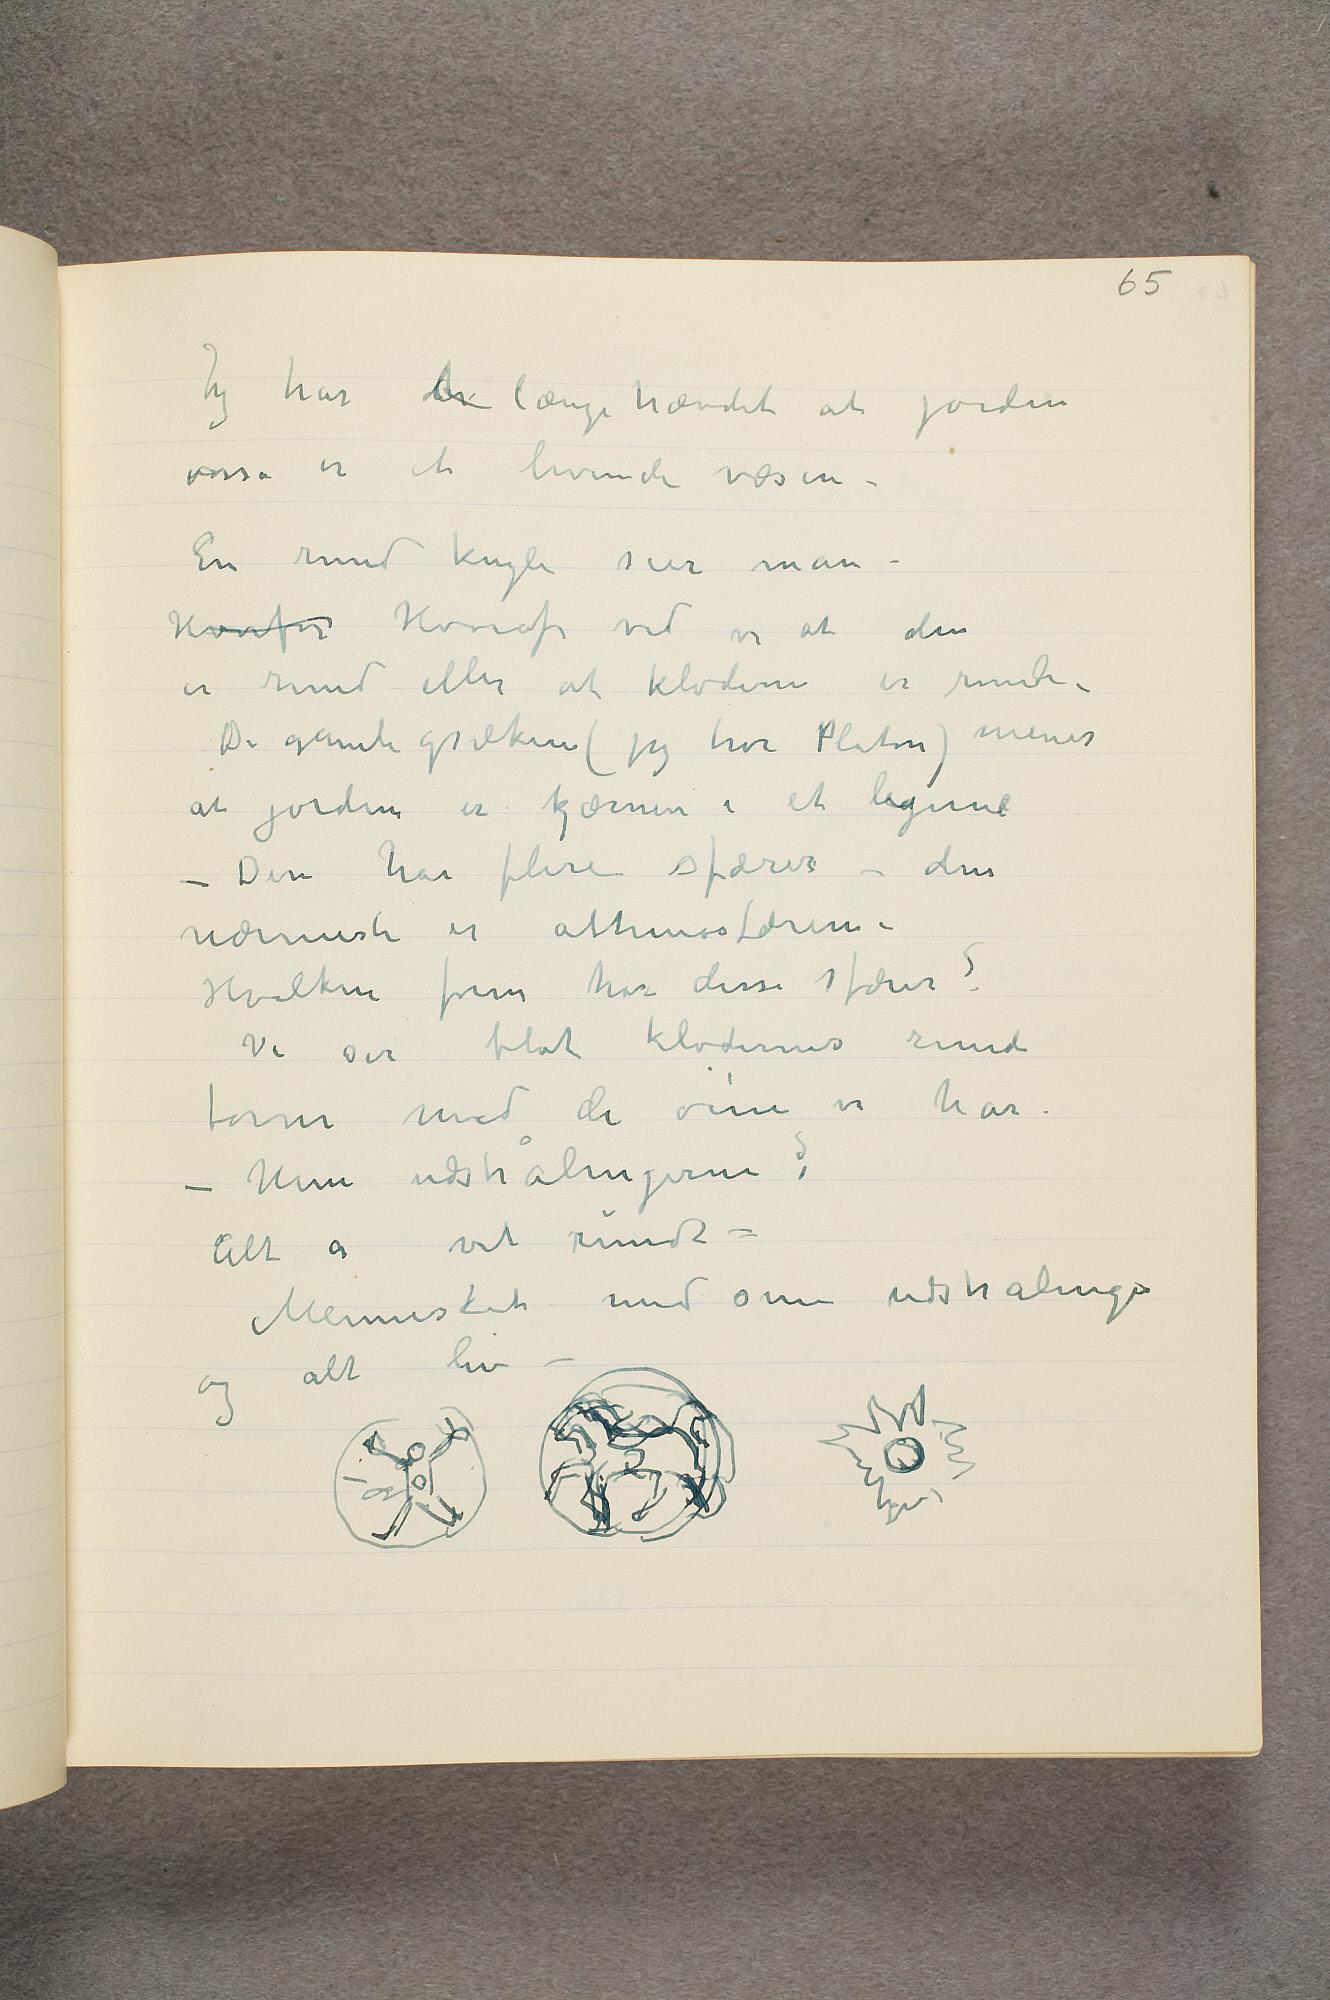 65
Jeg har længe hævdet at jorden
er et levende væsen –
En rund kugle sier man –
Hvorfor Hvoraf ved vi at den
er rund eller at kloderne er runde.
De gamle grækere (jeg tror Platon) mener
at jorden er kjærnen i et legeme
– Den har flere sfærer – den
nærmeste er athmosfæren.
Hvilken form har disse sfærer?
Vi ser blot klodernes runde
form med de øine vi har.
– Men udstrålingerne?
Alt er vet rundt –
Mennesket med sine udstrålinger
og alt liv –